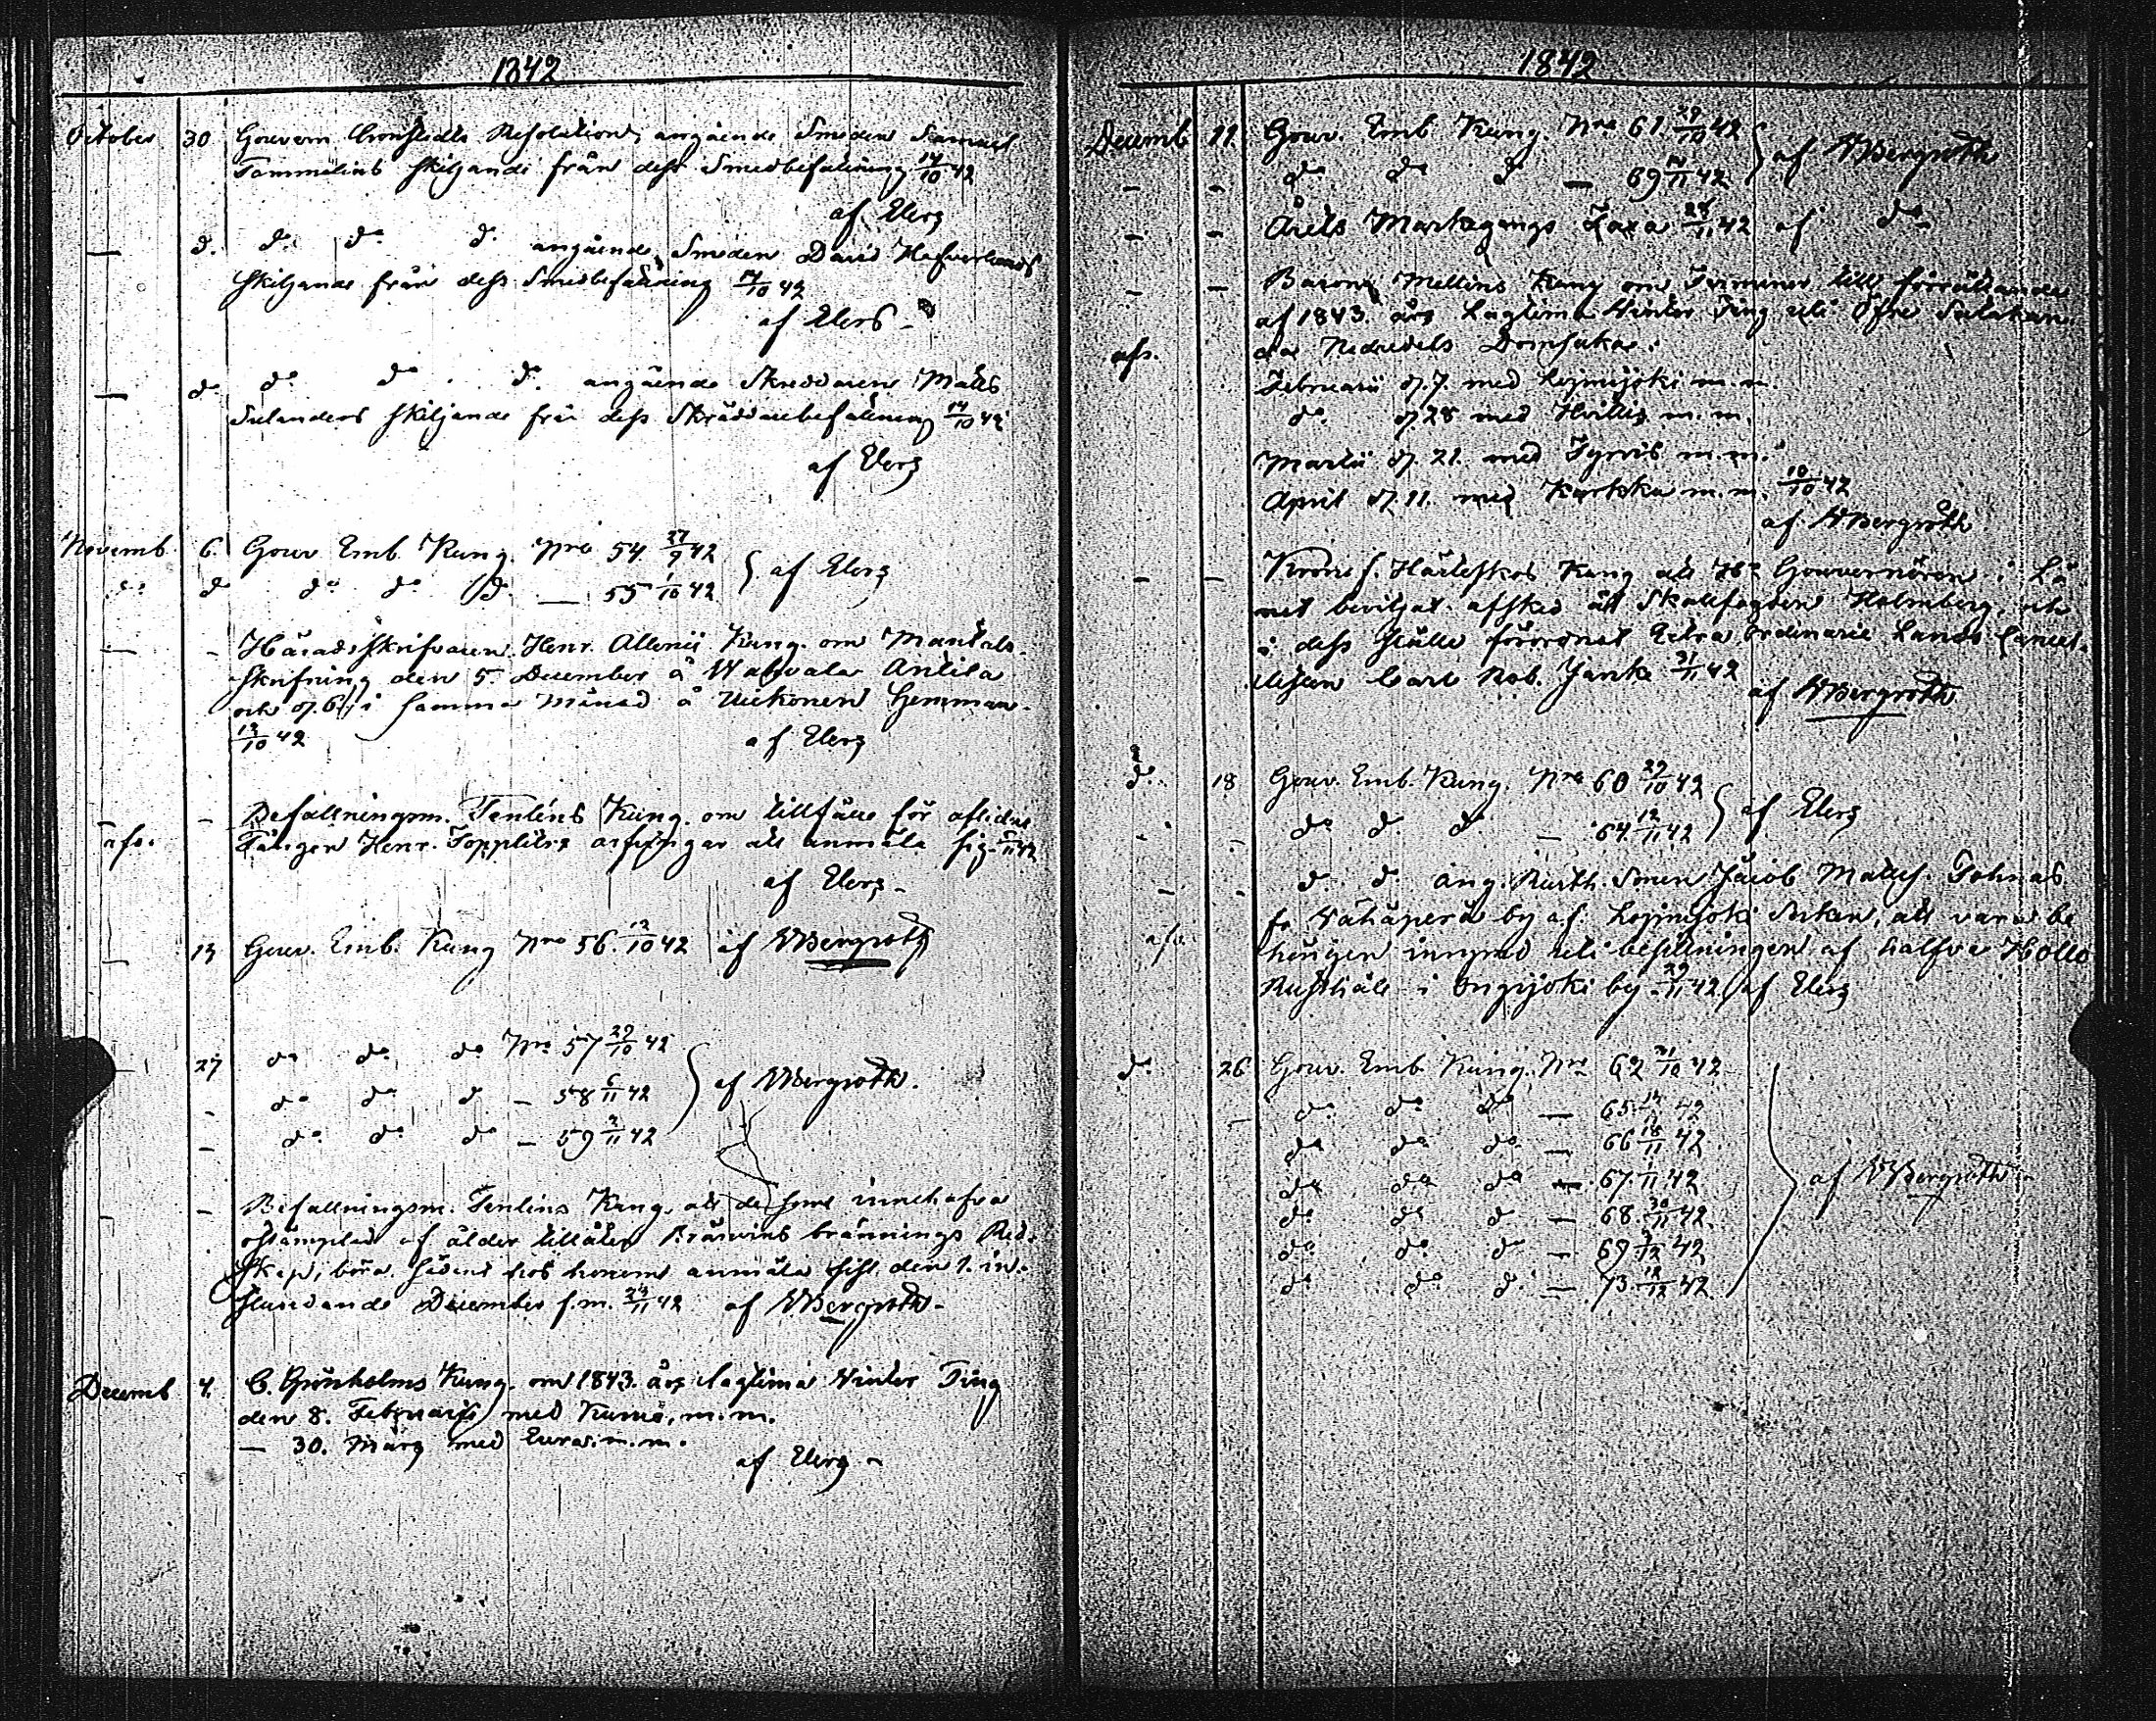 1842
October 30 Gouvern Cronstedts Resolution, angående Smeden Samuel
Tammelins skiljande från dess Smedbefattning 14/10 42
af Elers
— d. do do d. angående Smeden David
skiljande från dess Smedbefattning 14/10 42
af Elers
— do do do do. angående Skreddaren Matts
Sulanders skiljande från dess Skräddarebefattning 14/10 42
af Elers
Novemb. 6. Gouv Emb. Kung. Nro 54 27/9 42
d do do do — 55 1/10 42 } af Elers
— - Häradsskrifvaren Henr. Allenii Kung. om Mantals-
skrifning den 5. December å Anttila
och d. 6 i samma månad å Uickonen Hemman.
13/10 42 af Elers
- - Befallningsm. Tenléns Kung. om tillfälle för aflidne
afs. Fången Henr. arfvingar att anmäla sig
af Elers-
— 13 Gouv. Emb. Kung Nro 56. 12/10 42 af WBergroth
— 27 do do do Nro 57 29/10 42
- do do d — 58 6/11 42 } af WBergroth.
- do do do — 59 2/11 42
- - Befallningsm. Tenlins Kung. att de som innehafva
ostämplad af ålder tillåten Bränvins brännings Red-
skap, böra sådant hos honom anmäla sist den 1. in-
stundande December f.m. 24/11 42 af WBergroth-
Decemb 4. C. Grönholms Kung. om 1843. års lagtima Winter Ting
den 8. Februarii med Kumo, m.m.
— 30. Mars med Eura m.m.
af Elers -
1842
Decemb 11. Gouv. Emb Kung. Nro 61. 29/10 42
- - do do d — 69 42 } af WBergroth
- - Årets Markegangs Taxa 42 af do
- - Baron Mellins Kung om Terminer till förrättande
af 1843. års Lagtima Winter Ting uti Öfre Satakun-
afs. da Nedredels Domsaka:
Februarii d. 7. med Loimijoki m.m.
do. d. 28 med Hvittis m.m.
Martii d. 21. med Tyrvis m.m.
April d. 11. med Karkku m.m. 10/10 42
af WBergroth
- - Kronof. Kung att Hr Gouvernören i Lä-
net beviljat afsked åt Skallfogden Holmberg, och
i dess ställe förordnat Extra Ordinarie Lands Cancel-
listen Carl Rob. Janke 42
af WBergroth
d. 18 Gouv. Emb. Kung. Nro 60 29/10 42
- - do d. d — 64 12/11 42 } af Elers
- - d. d. ang. Rusth. Sonen Jacob Matts. Tohnas
fr. Vähäperä by af Loimijoki Socken, att vara be-
afs. hörigen inrymd uti besittningen af halfva Hollo
Rusthåll i Onnijoki by 29/11 42 af Elers
d. 26 Gouv. Emb. Kung. Nro 62 31/10 42
- do do do — 65 42
do do do — 66 18/11 42
do do do — 67 42 } af WBergroth
do do d — 68 30/11 42
do do d — 69 42
do do d. — 73. 42